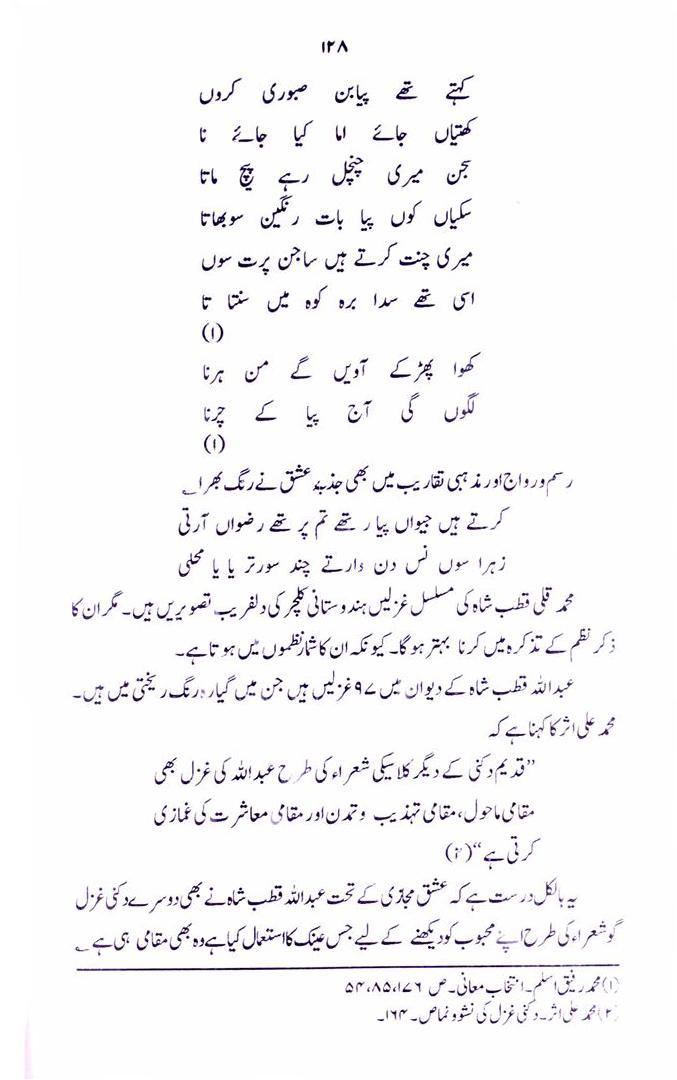 ۱۲۸
کہتے تھے پیابن صبوری کروں
کھتیاں جائے اما کیا جائے نا
سجن میری چنچل رہے پیچ ماتا
سکیاں کوں پیا بات رنگین سوبھاتا
میری چنت کرتے ہیں ساجن پرت سوں
اسی تھے سدا برہ کوہ میں سنتا تا
(۱)
کھوا پھڑکے آویں گے من ہرنا
لگوں گی آج پیا کے چرنا
(۱)
رسم ورواج اور مذہبی تقاریب میں بھی جذبہ عشق نے رنگ بھرا ؎
کرتے ہیں جیواں پیار تھے تم پر تھے رضواں آرتی
زہرا سوں نس دن وارتے چند سورتر یا یا محلی
محمد قلی قطب شاہ کی مسلسل غزلیں ہندوستانی کلچر کی دلفریب تصویریں ہیں۔ مگر ان کا
ذکر نظم کے تذکرہ میں کرنا بہتر ہوگا۔ کیونکہ ان کا شمار نظموں میں ہوتا ہے۔
عبداللہ قطب شاہ کے دیوان میں ۹۷ غزلیں ہیں جن میں گیارہ رنگ ریختی میں ہیں۔
محمد علی اثر کا کہنا ہے کہ
”قدیم دکنی کے دیگر کلاسیکی شعراء کی طرح عبداللہ کی غزل بھی
مقامی ماحول، مقامی تہذیب و تمدن اور مقامی معاشرت کی غمازی
کرتی ہے“ (۲)
یہ بالکل درست ہے کہ عشق مجازی کے تحت عبداللہ قطب شاہ نے بھی دوسرے دکنی غزل
گو شعراء کی طرح اپنے محبوب کو دیکھنے کے لیے جس عینک کا استعمال کیا ہے وہ بھی مقامی ہی ہے ؎
(۱) محمد رفیق اسلم۔ انتخاب معانی۔ ص ۵۴،۸۵،۱۷۶
(۲) محمد علی اثر۔ دکنی غزل کی نشوونما ص۔ ۱۶۴۔